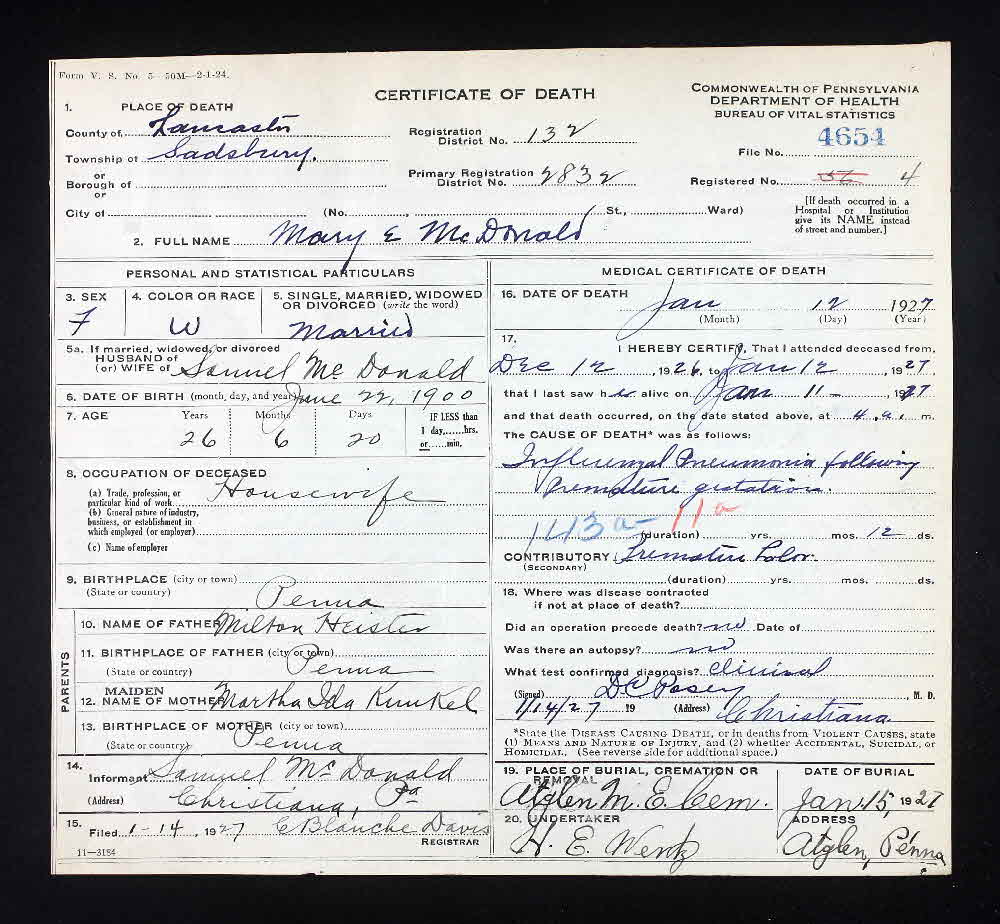 Form V. S. No. 5—50M—2-1-24.
CERTIFICATE OF DEATH
COMMONWEALTH OF PENNSYLVANIA
DEPARTMENT OF HEALTH
BUREAU OF VITAL STATISTICS
1. PLACE OF DEATH
County of Lancaster
Township of Sadsbury.
or
Borough of
or
City of (No. St., Ward)
Registration District No. 132
Primary Registration District No. 2832
File No. 4654
Registered No. 4
[If death occurred in a Hospital or Institution give its NAME instead of street and number.]
2. FULL NAME Mary E McDonald
PERSONAL AND STATISTICAL PARTICULARS
3. SEX F
4. COLOR OR RACE W
5. SINGLE, MARRIED, WIDOWED OR DIVORCED (write the word) Married
5a. If married, widowed, or divorced
HUSBAND of
(or) WIFE of Samuel McDonald
6. DATE OF BIRTH (month, day, and year) June 22, 1900
7. AGE Years Months Days IF LESS than
26 6 20 1 day,.....hrs. or.....min.
8. OCCUPATION OF DECEASED
(a) Trade, profession, or particular kind of work Housewife
(b) General nature of industry, business, or establishment in which employed (or employer)
(c) Name of employer
9. BIRTHPLACE (city or town)
(State or country) Penna
PARENTS
10. NAME OF FATHER Milton Heister
11. BIRTHPLACE OF FATHER (city or town)
(State or country) Penna
12. MAIDEN NAME OF MOTHER Martha Ida Kunkel
13. BIRTHPLACE OF MOTHER (city or town)
(State or country) Penna
14. Informant Samuel McDonald
(Address) Christiana, Pa
15. Filed 1-14, 1927 C Blanche Davis
REGISTRAR
11—3184
MEDICAL CERTIFICATE OF DEATH
16. DATE OF DEATH Jan 12 1927
(Month) (Day) (Year)
17. I HEREBY CERTIFY, That I attended deceased from
Dec 12, 1926, to Jan 12, 1927.
that I last saw her alive on Jan 11, 1927
and that death occurred, on the date stated above, at 4 a. m.
The CAUSE OF DEATH* was as follows:
Influenzal Pneumonia following
Premature gestation.
113a- 11a
(duration) yrs. mos. 12 ds.
CONTRIBUTORY Premature Labor.
(SECONDARY)
(duration) yrs. mos. ds.
18. Where was disease contracted
if not at place of death?
Did an operation precede death? no Date of
Was there an autopsy? no
What test confirmed diagnosis? Clinical
(Signed) D C Posey, M. D.
1/14/27 19 (Address) Christiana
*State the DISEASE CAUSING DEATH, or in deaths from VIOLENT CAUSES, state
(1) MEANS AND NATURE OF INJURY, and (2) whether ACCIDENTAL, SUICIDAL, or
HOMICIDAL. (See reverse side for additional space.)
19. PLACE OF BURIAL, CREMATION OR REMOVAL
Atglen M. E. Cem.
DATE OF BURIAL
Jan. 15, 1927
20. UNDERTAKER
H. E. Wentz
ADDRESS
Atglen, Penna